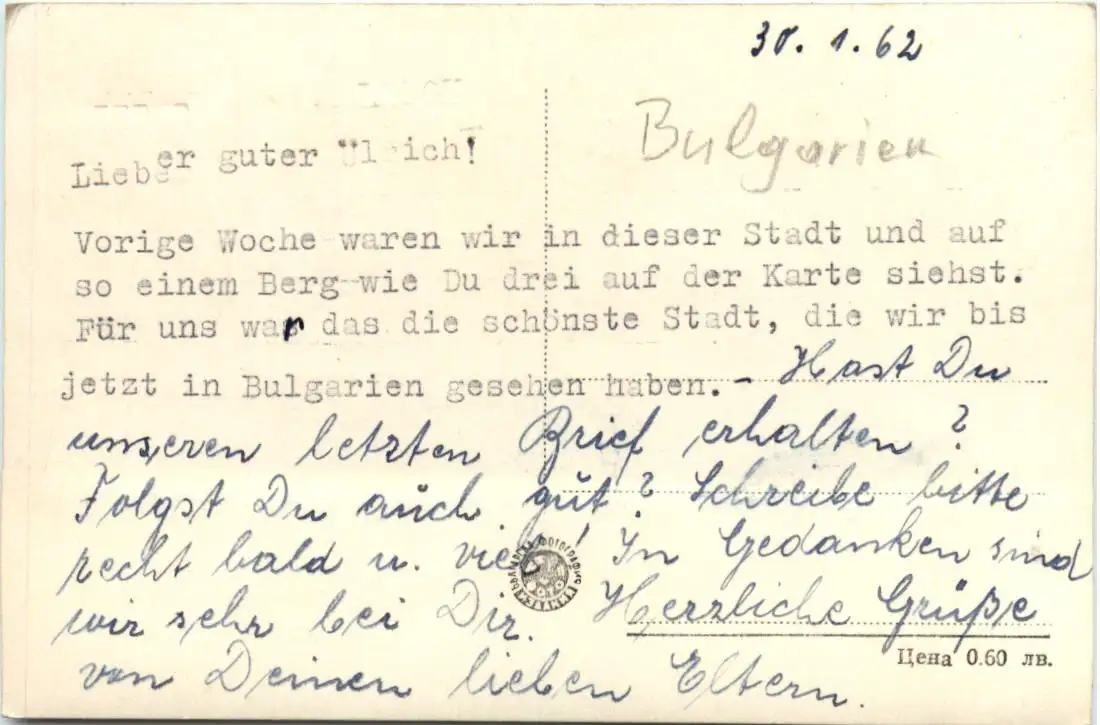 30. 1. 62
Bulgarien
Lieber guter Ulrich!
Vorige Woche waren wir in dieser Stadt und auf
so einem Berg wie Du drei auf der Karte siehst.
Für uns war das die schönste Stadt, die wir bis
jetzt in Bulgarien gesehen haben. - Hast Du
unseren letzten Brief erhalten?
Folgst Du auch gut? Schreibe bitte
recht bald u. viel! In Gedanken sind
wir sehr bei Dir. Herzliche Grüße
von Deinen lieben Eltern.
Цена 0.60 лв.